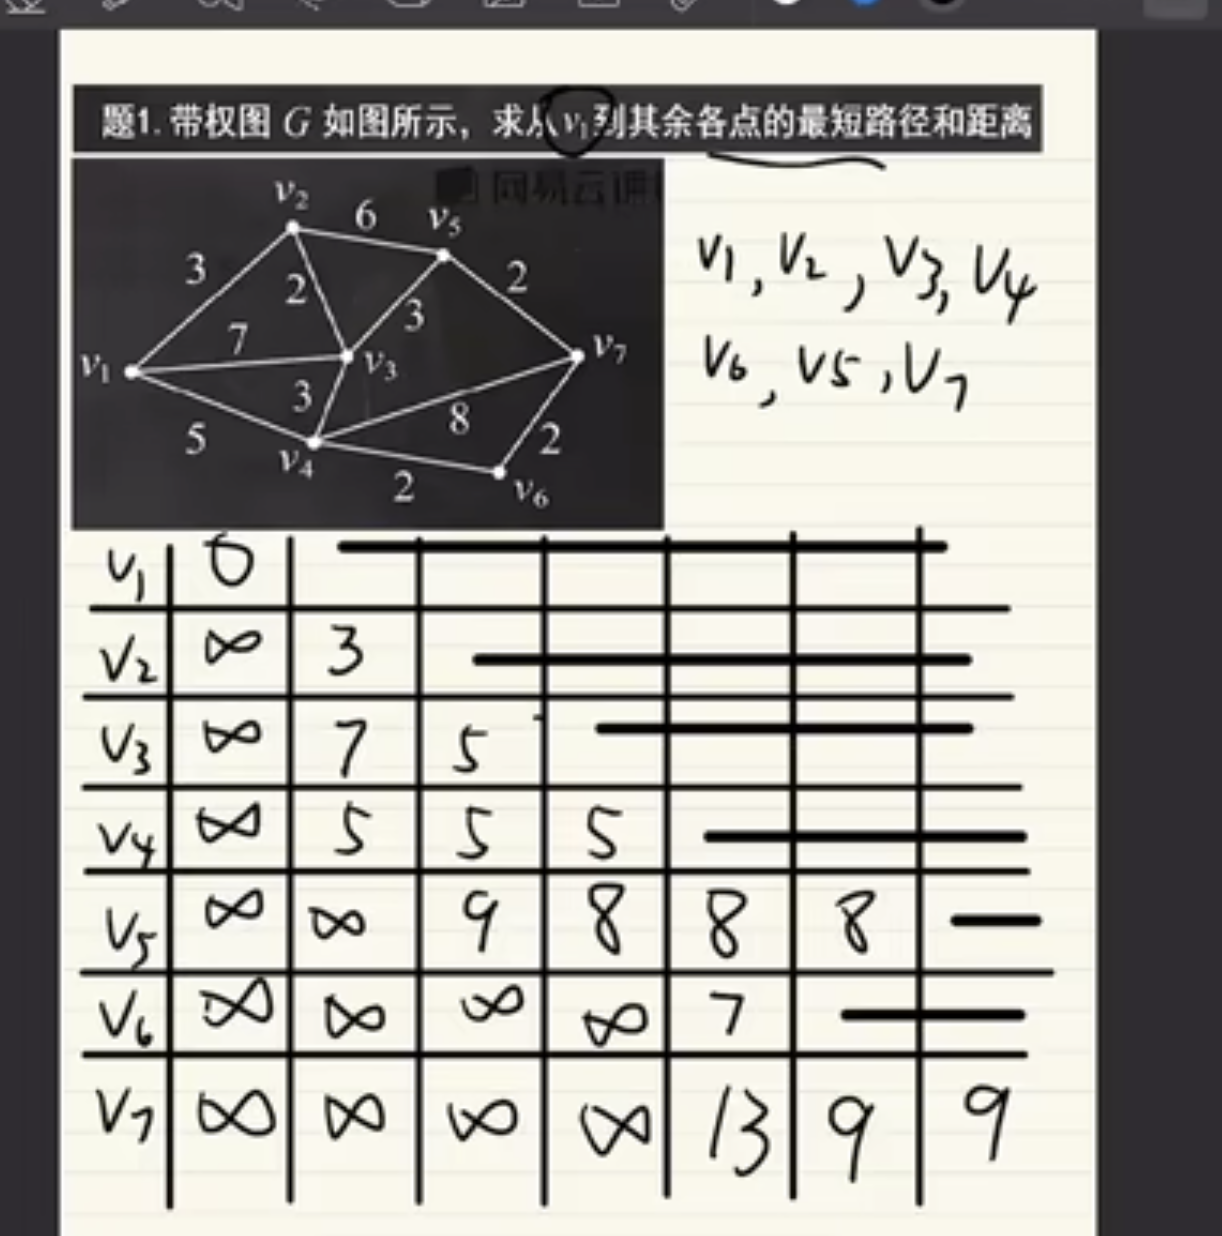 题1. 带权图 G 如图所示，求从v₁到其余各点的最短路径和距离
网易云
v₂ 6 v₅
3 2 3 2
v₁ 7 v₃ v₇
5 3 8 2
v₄ 2 v₆
V1, V2, V3, V4
V6, V5, V7
V1 0
V2 ∞ 3
V3 ∞ 7 5
V4 ∞ 5 5 5
V5 ∞ ∞ 9 8 8 8
V6 ∞ ∞ ∞ ∞ 7
V7 ∞ ∞ ∞ ∞ 13 9 9